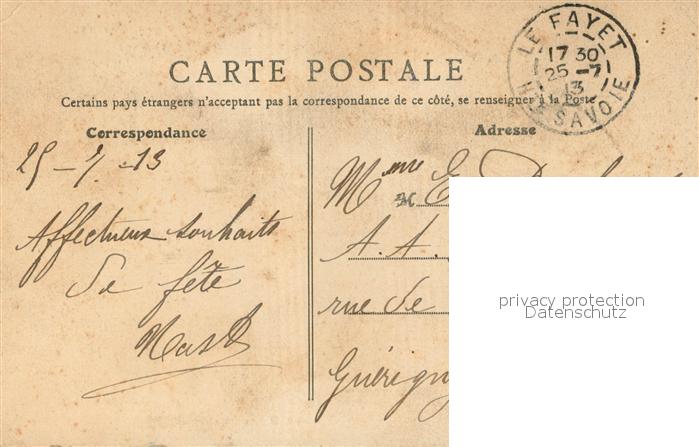 LE FAYET
17 30
25 -7
13
HTE SAVOIE
CARTE POSTALE
Certains pays étrangers n'acceptant pas la correspondance de ce côté, se renseigner à la Poste
Correspondance
Adresse
25-7-13
Mme E.
Affectueux souhaits
A. A.
de fête
rue de
privacy protection
Datenschutz
Guérigny